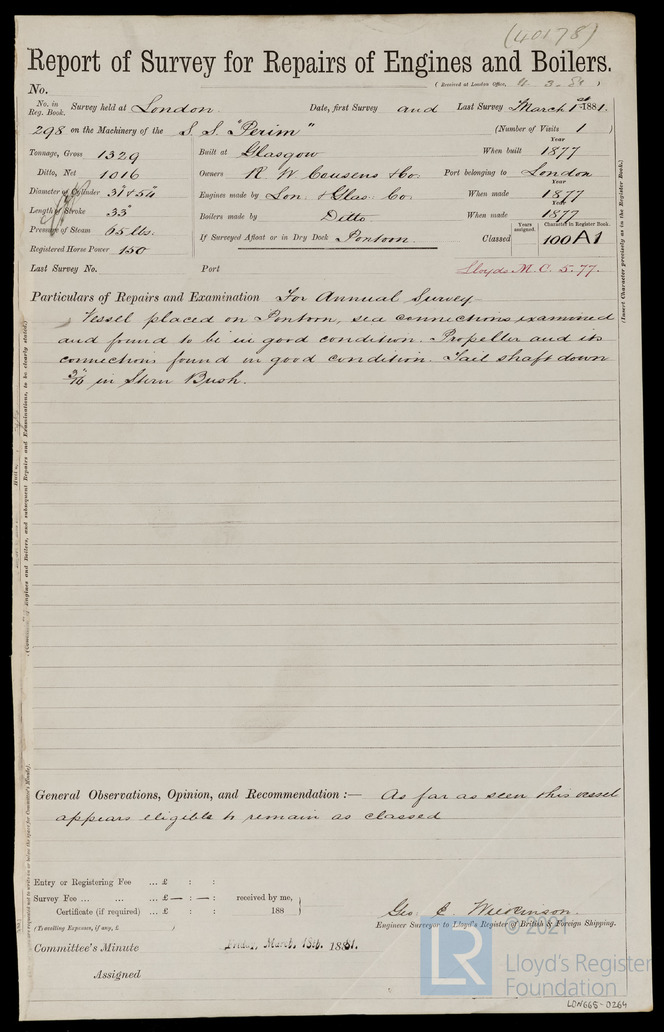 (40178)
Report of Survey for Repairs of Engines and Boilers.
No.
(Received at London Office, 4 . 3 . 81 )
No. in Reg. Book. Survey held at London. Date, first Survey and Last Survey March 1st 1881.
298 on the Machinery of the S.S. "Perim" (Number of Visits 1 )
Tonnage, Gross 1329 Built at Glasgow When built Year 1877
Ditto, Net 1016 Owners R W Cousens & Co. Port belonging to London
Diameter of Cylinder 31" & 54" Engines made by Lon. & Glas. Co. When made Year 1877
Length of Stroke 33" Boilers made by Ditto When made Year 1877
Pressure of Steam 65 lbs. If Surveyed Afloat or in Dry Dock Pontoon. Classed Years assigned. Character in Register Book. 100A1
Registered Horse Power 150
Last Survey No. Port Lloyds M.C. 5.77.
(Insert Character precisely as in the Register Book.)
Particulars of Repairs and Examination For Annual Survey
Vessel placed on Pontoon, sea connections examined
and found to be in good condition. Propeller and its
connections found in good condition. Tail shaft down
3/16 in Stern Bush.
General Observations, Opinion, and Recommendation :— As far as seen this vessel
appears eligible to remain as classed
Entry or Registering Fee ... £ : :
Survey Fee ... ... ... £ — : — : received by me,
Certificate (if required) ... £ : : 188
(Travelling Expenses, if any, £ )
Geo. E. Wilkinson.
Engineer Surveyor to Lloyd's Register of British & Foreign Shipping.
Committee's Minute Friday, March, 1881.
Assigned
© 2021
LR
Lloyd's Register
Foundation
LDN665-0264